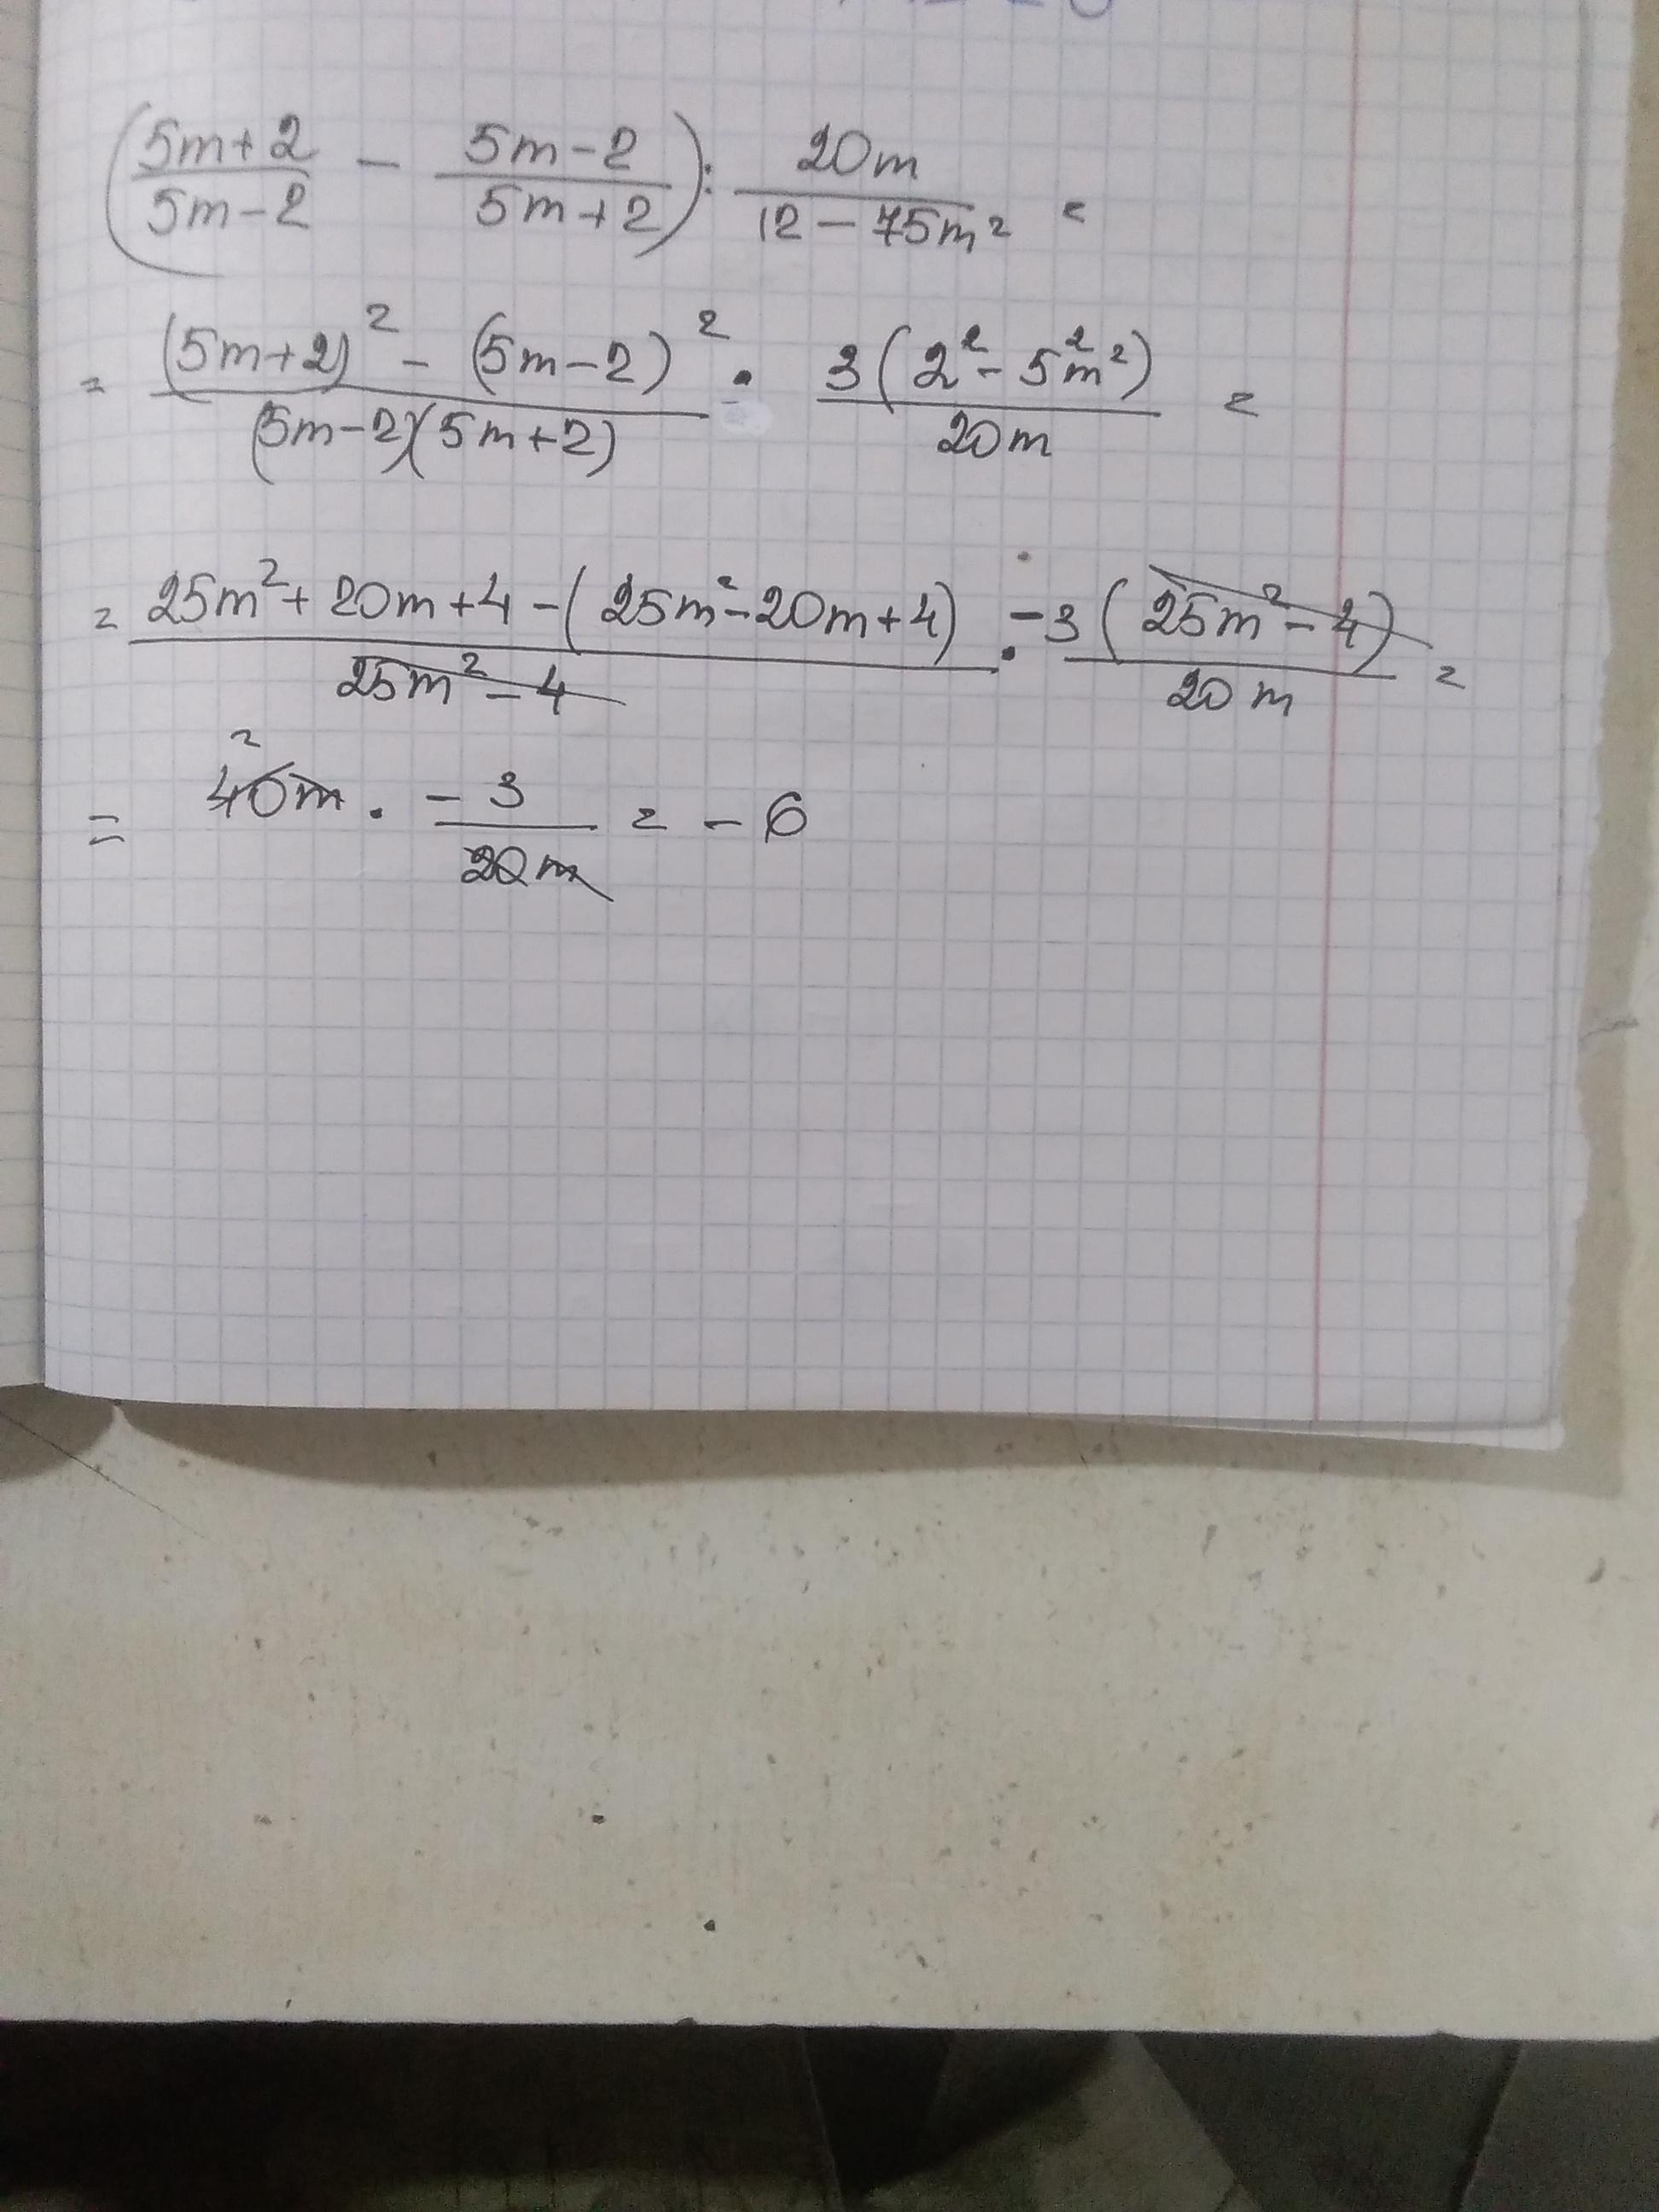 (5m+2/5m-2 - 5m-2/5m+2) : 20m/12-75m² =
= (5m+2)² - (5m-2)²/(5m-2)(5m+2) · 3(2²-5²m²)/20m =
= 25m²+20m+4-(25m²-20m+4)/25m²-4 · -3(25m²-4)/20m =
2
= 40m · -3/20m = -6